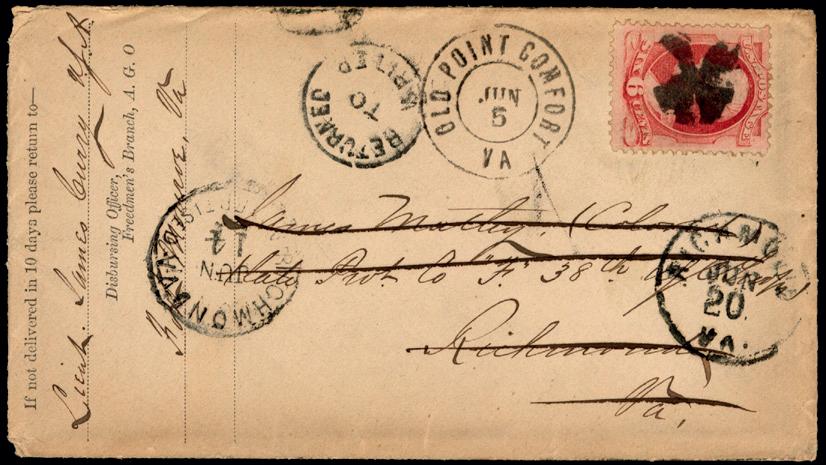 If not delivered in 10 days please return to—
Lieut. James Curry U.S.A.
Disbursing Officer,
Freedmen's Branch, A. G. O
Va
RETURNED
TO
WRITER
OLD POINT COMFORT
JUN
5
VA
6
CENTS
James (Colored)
Late Co "F" 38th
Richmond,
Va,
RICHMOND VA
JUN
14
RICHMOND
JUN
20
VA.